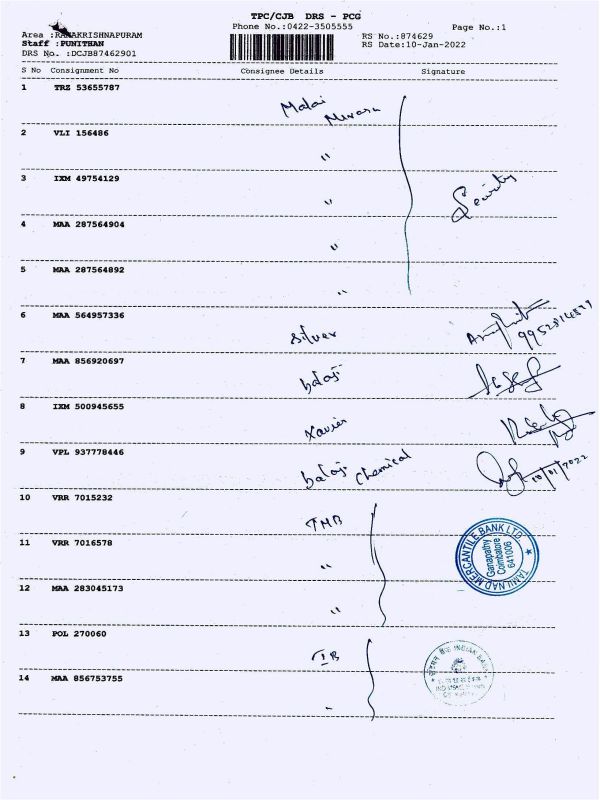 TPC/CJB DRS - PCG
Phone No.:0422-3505555 Page No.:1
Area :RAMAKRISHNAPURAM RS No.:874629
Staff :PUNITHAN RS Date:10-Jan-2022
DRS No. :DCJB87462901
S No Consignment No Consignee Details Signature
1 TRZ 53655787 Malai
Murasu
2 VLI 156486
"
3 IXM 49754129
" Security
4 MAA 287564904
"
5 MAA 287564892
"
6 MAA 564957336
Silver
7 MAA 856920697
balaji
8 IXM 500945655
Xavier
9 VPL 937778446
balaji Chemical 10/01/2022
10 VRR 7015232
TMB
11 VRR 7016578
"
TAMILNAD MERCANTILE BANK LTD.
Ganapathy
Coimbatore
641006
12 MAA 283045173
"
13 POL 270060
IB
INDIAN BANK
14 MAA 856753755
"